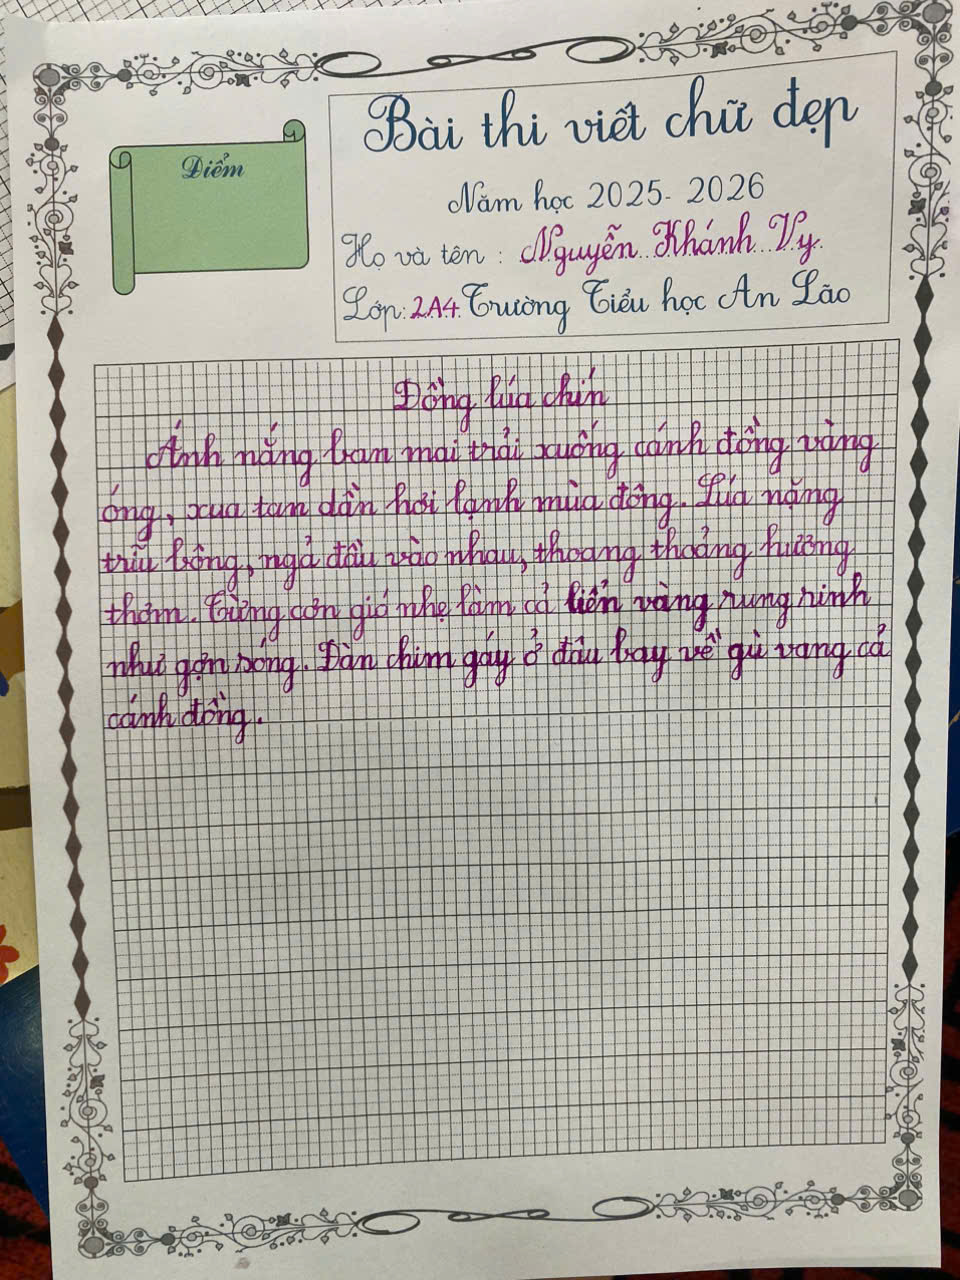 Điểm
Bài thi viết chữ đẹp
Năm học 2025-2026
Họ và tên : Nguyễn Khánh Vy.
Lớp: 2A4. Trường Tiểu học An Lão
Đồng lúa chín
Ánh nắng ban mai trải xuống cánh đồng vàng
óng, xua tan dần hơi lạnh mùa đông. Lúa nặng
trĩu bông, ngả đầu vào nhau, thoang thoảng hương
thơm. Từng cơn gió nhẹ làm cả biển vàng rung rinh
như gợn sóng. Đàn chim gáy ở đâu bay về gù vang cả
cánh đồng.